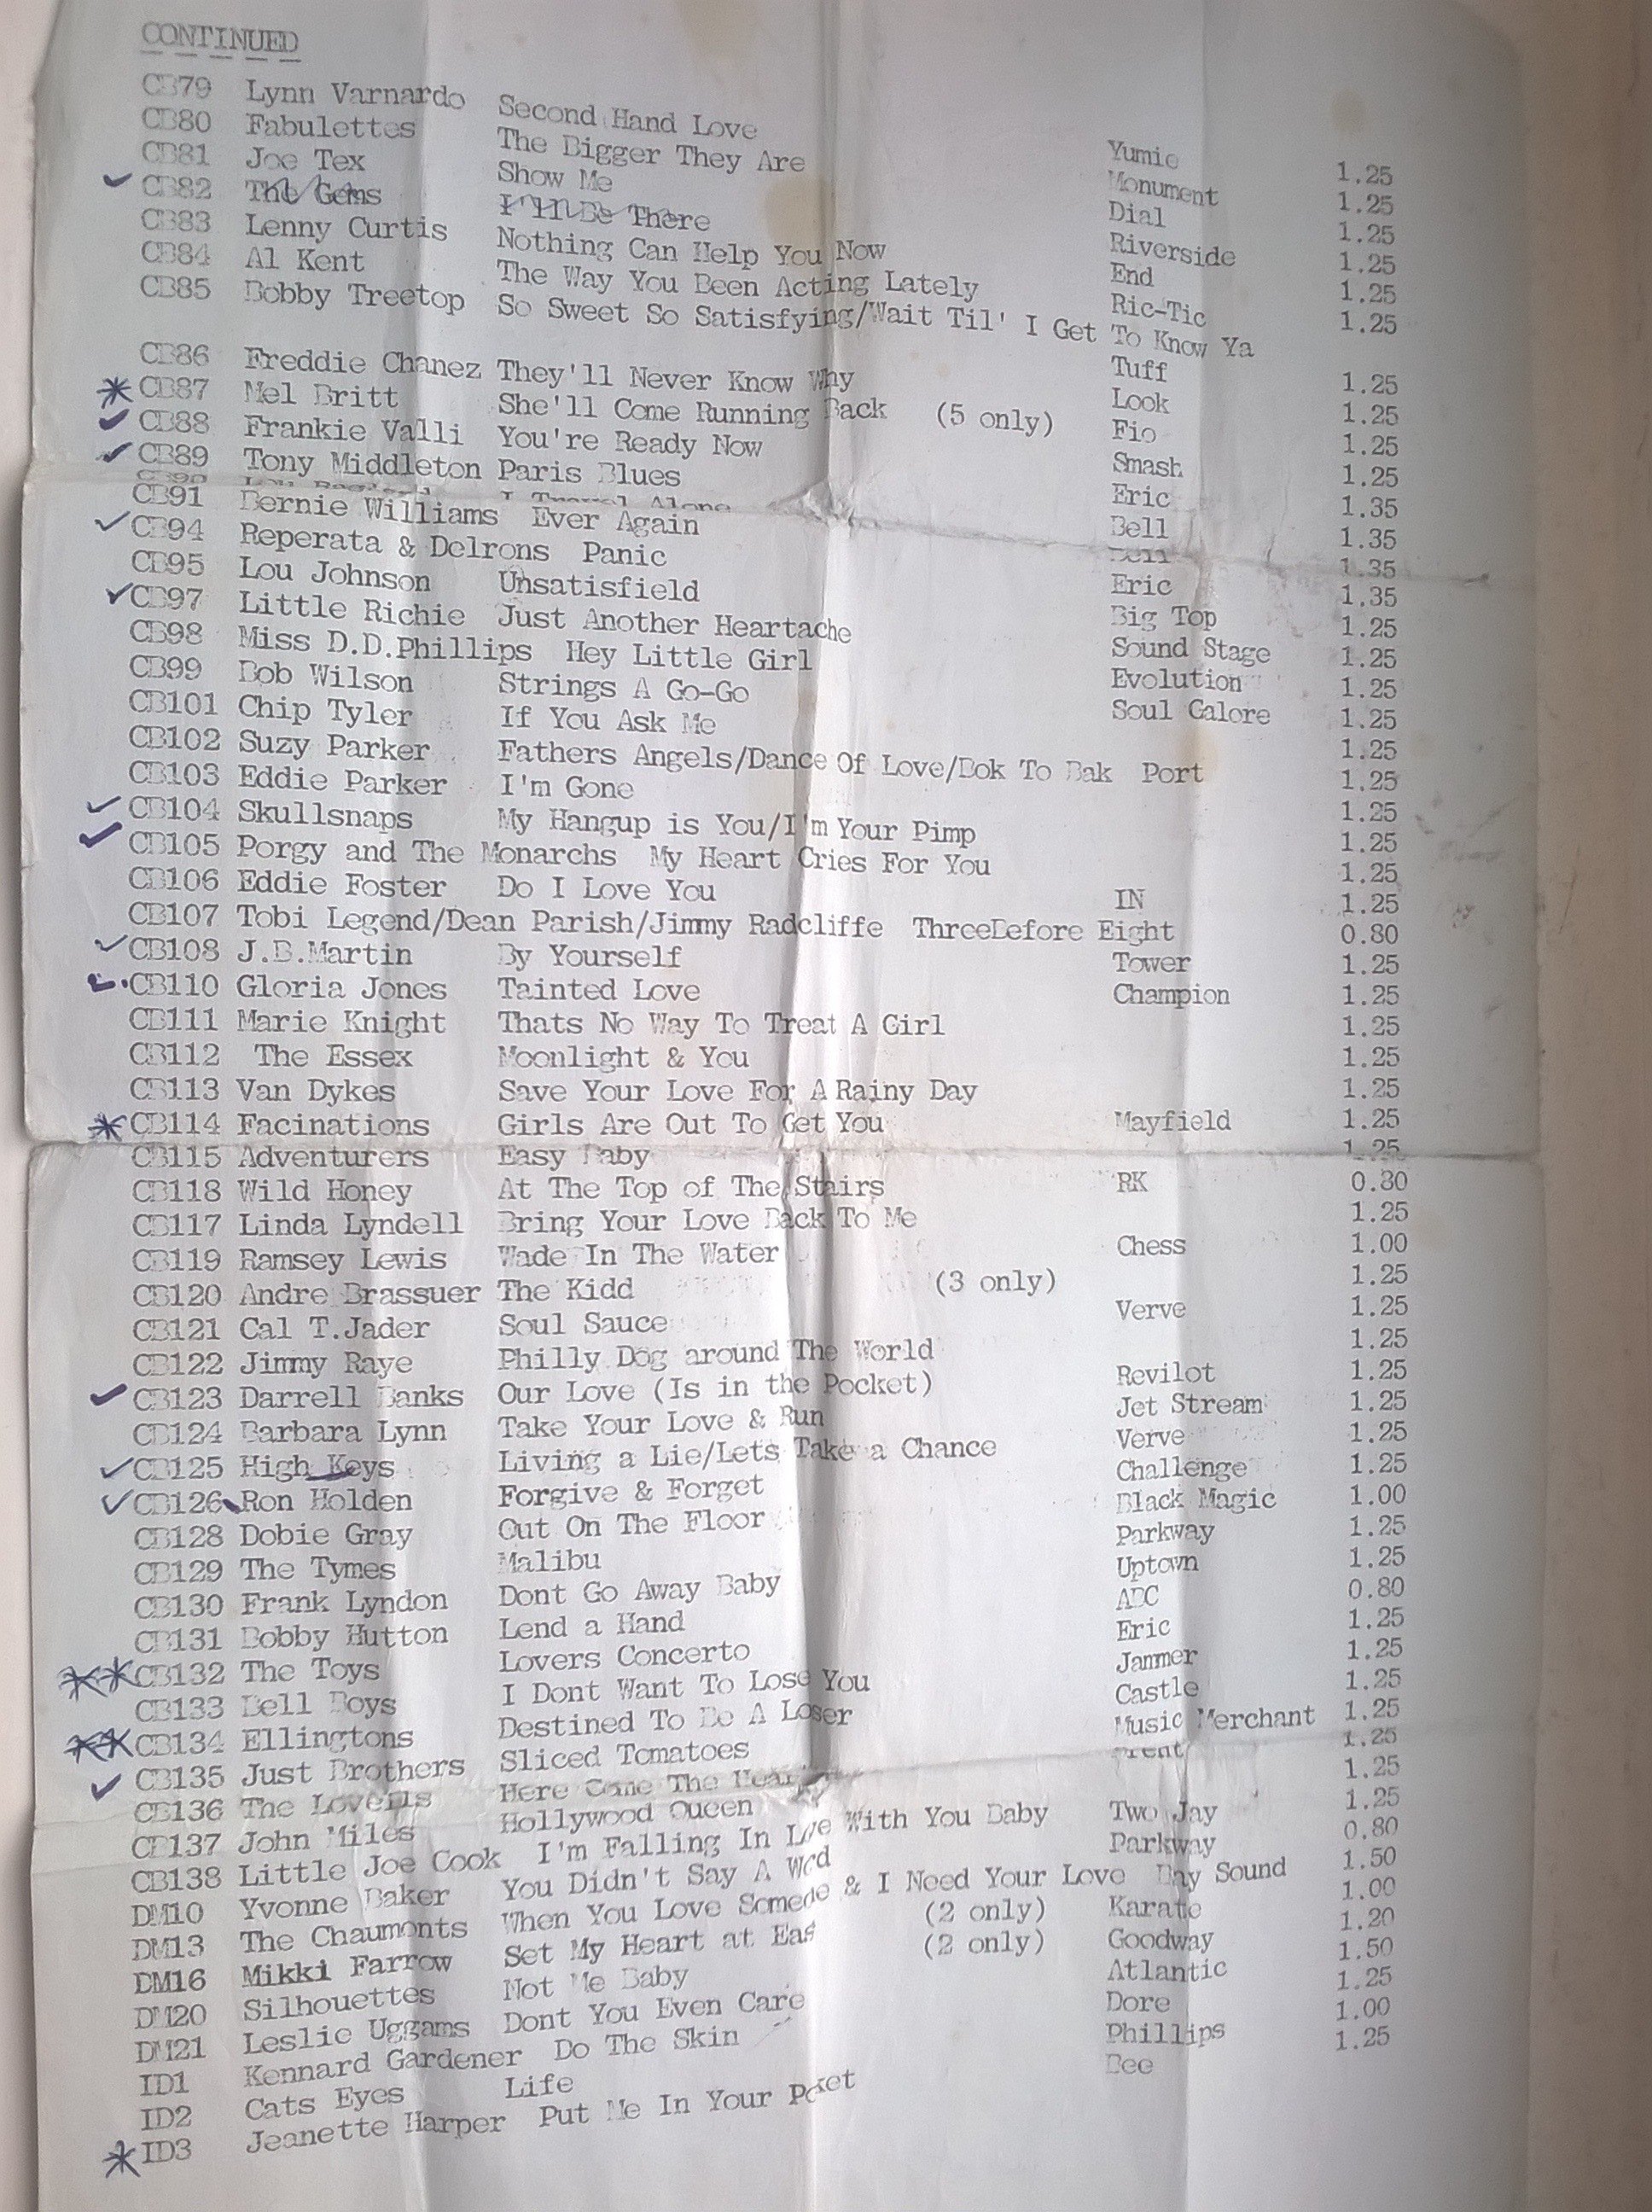 CONTINUED
CB79 Lynn Varnardo Second Hand Love Yumie 1.25
CB80 Fabulettes The Bigger They Are Monument 1.25
CB81 Joe Tex Show Me Dial 1.25
CB82 The Gems I'll Be There Riverside 1.25
CB83 Lenny Curtis Nothing Can Help You Now End 1.25
CB84 Al Kent The Way You Been Acting Lately Ric-Tic 1.25
CB85 Bobby Treetop So Sweet So Satisfying/Wait Til' I Get To Know Ya
Tuff 1.25
CB86 Freddie Chanez They'll Never Know Why Look 1.25
CB87 Mel Britt She'll Come Running Back (5 only) Fio 1.25
CB88 Frankie Valli You're Ready Now Smash 1.25
CB89 Tony Middleton Paris Blues Eric 1.35
CB90 Lou Ragland I Travel Alone Bell 1.35
CB91 Bernie Williams Ever Again Bell 1.35
CB94 Reperata & Delrons Panic Eric 1.35
CB95 Lou Johnson Unsatisfield Big Top 1.25
CB97 Little Richie Just Another Heartache Sound Stage 1.25
CB98 Miss D.D.Phillips Hey Little Girl Evolution 1.25
CB99 Bob Wilson Strings A Go-Go Soul Galore 1.25
CB101 Chip Tyler If You Ask Me 1.25
CB102 Suzy Parker Fathers Angels/Dance Of Love/Bok To Bak Port 1.25
CB103 Eddie Parker I'm Gone 1.25
CB104 Skullsnaps My Hangup is You/I'm Your Pimp 1.25
CB105 Porgy and The Monarchs My Heart Cries For You 1.25
CB106 Eddie Foster Do I Love You IN 1.25
CB107 Tobi Legend/Dean Parish/Jimmy Radcliffe ThreeBefore Eight 0.80
CB108 J.B.Martin By Yourself Tower 1.25
CB110 Gloria Jones Tainted Love Champion 1.25
CB111 Marie Knight Thats No Way To Treat A Girl 1.25
CB112 The Essex Moonlight & You 1.25
CB113 Van Dykes Save Your Love For A Rainy Day 1.25
CB114 Facinations Girls Are Out To Get You Mayfield 1.25
CB115 Adventurers Easy Baby 1.25
CB118 Wild Honey At The Top of The Stairs RK 0.80
CB117 Linda Lyndell Bring Your Love Back To Me 1.25
CB119 Ramsey Lewis Wade In The Water Chess 1.00
CB120 Andre Brassuer The Kidd (3 only) 1.25
CB121 Cal T.Jader Soul Sauce Verve 1.25
CB122 Jimmy Raye Philly Dog around The World 1.25
CB123 Darrell Banks Our Love (Is in the Pocket) Revilot 1.25
CB124 Barbara Lynn Take Your Love & Run Jet Stream 1.25
CB125 High Keys Living a Lie/Lets Take a Chance Verve 1.25
CB126 Ron Holden Forgive & Forget Challenge 1.25
CB128 Dobie Gray Out On The Floor Black Magic 1.00
CB129 The Tymes Malibu Parkway 1.25
CB130 Frank Lyndon Dont Go Away Baby Uptown 1.25
CB131 Bobby Hutton Lend a Hand ABC 0.80
CB132 The Toys Lovers Concerto Eric 1.25
CB133 Bell Boys I Dont Want To Lose You Jammer 1.25
CB134 Ellingtons Destined To Be A Loser Castle 1.25
CB135 Just Brothers Sliced Tomatoes Music Merchant 1.25
CB136 The Lovells Here Come The Brent 1.25
CB137 John Miles Hollywood Queen 1.25
CB138 Little Joe Cook I'm Falling In Love With You Baby Two Jay 1.25
DM10 Yvonne Baker You Didn't Say A Word Parkway 0.80
DM13 The Chaumonts When You Love Someone & I Need Your Love Bay Sound 1.50
DM16 Mikki Farrow Set My Heart at Ease (2 only) Karate 1.00
DM20 Silhouettes Not Me Baby (2 only) Goodway 1.20
DM21 Leslie Uggams Dont You Even Care Atlantic 1.50
ID1 Kennard Gardener Do The Skin Dore 1.25
ID2 Cats Eyes Life Phillips 1.00
ID3 Jeanette Harper Put Me In Your Pocket Bee 1.25